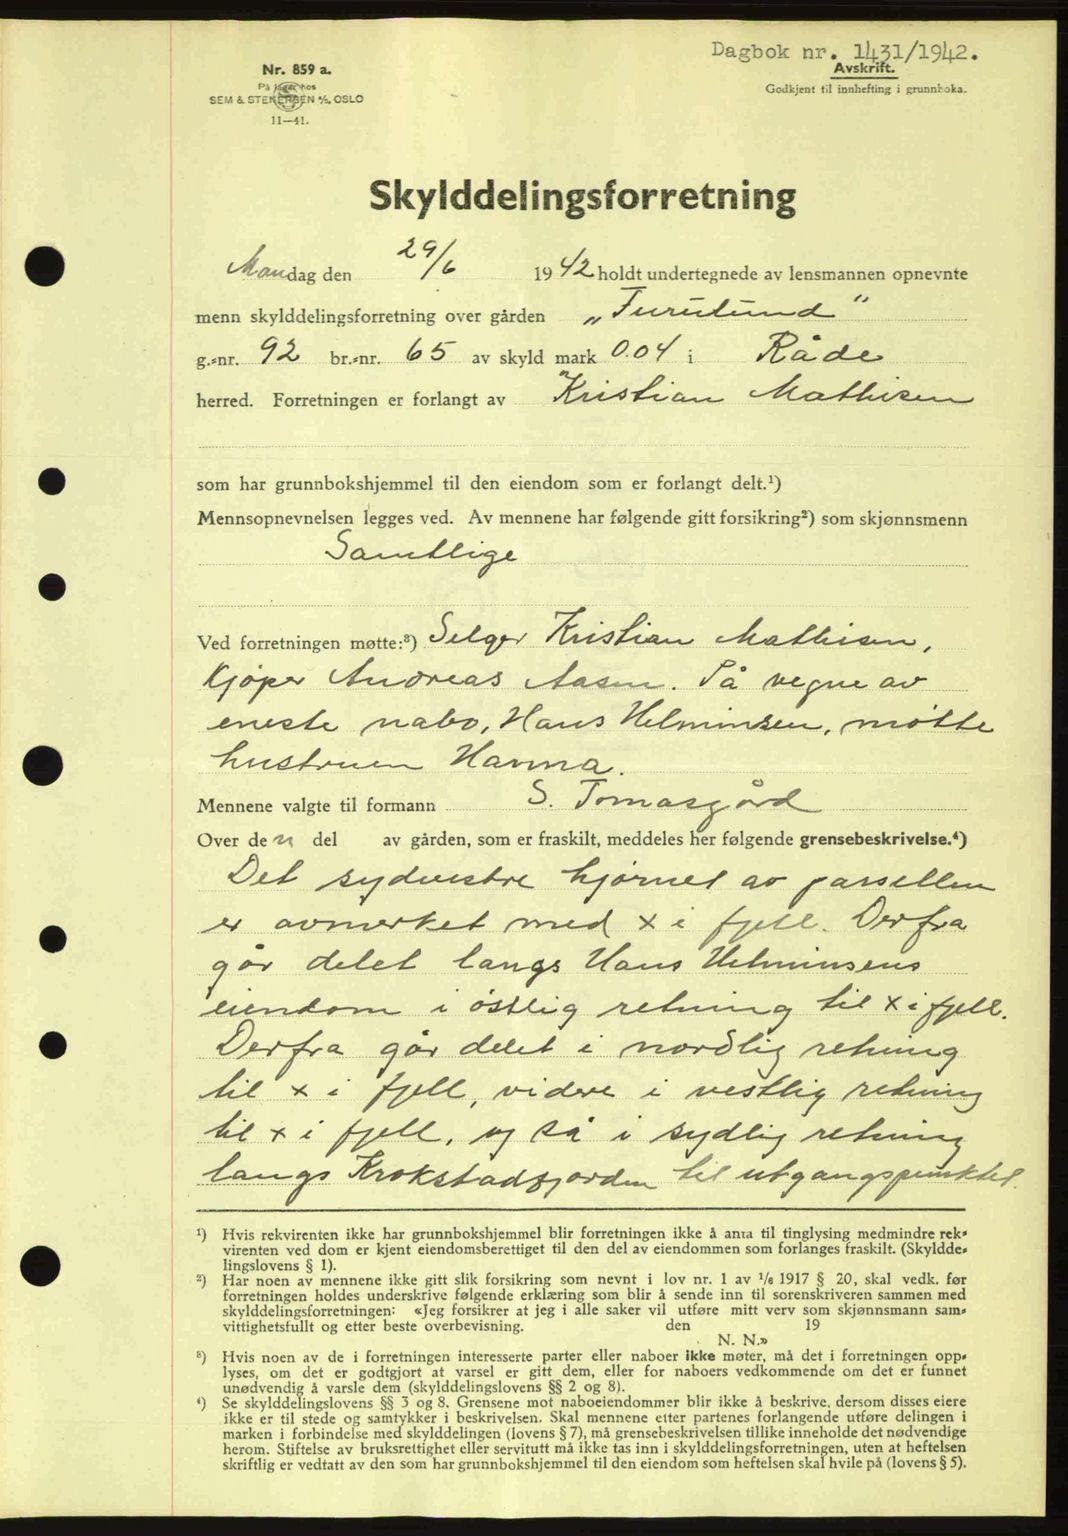 Dagbok nr. 1431/1942.
Nr. 859 a.
På lager hos
SEM & STENERSEN A/S, OSLO
11—41.
Avskrift.
Godkjent til innhefting i grunnboka.
Skylddelingsforretning
Mandag den 29/6 1942 holdt undertegnede av lensmannen opnevnte
menn skylddelingsforretning over gården „Furulund"
g.-nr. 92 br.-nr. 65 av skyld mark 0.04 i Råde
herred. Forretningen er forlangt av Kristian Mathisen
som har grunnbokshjemmel til den eiendom som er forlangt delt.¹)
Mennsopnevnelsen legges ved. Av mennene har følgende gitt forsikring²) som skjønnsmenn
Samtlige
Ved forretningen møtte:³) Selger Kristian Mathisen,
kjøper Andreas Aasen. På vegne av
eneste nabo, Hans Helminsen, møtte
hustruen Hanna.
Mennene valgte til formann S. Tomasgård
Over den del av gården, som er fraskilt, meddeles her følgende grensebeskrivelse.⁴)
Det sydvestre hjørnet av parsellen
er avmerket med x i fjell. Derfra
går delet langs Hans Helminsens
eiendom i østlig retning til x i fjell.
Derfra går delet i nordlig retning
til x i fjell, videre i vestlig retning
til x i fjell, og så i sydlig retning
langs Krokstadfjorden til utgangspunktet.
¹) Hvis rekvirenten ikke har grunnbokshjemmel blir forretningen ikke å anta til tinglysing medmindre rek-
virenten ved dom er kjent eiendomsberettiget til den del av eiendommen som forlanges fraskilt. (Skyldde-
lingslovens § 1).
²) Har noen av mennene ikke gitt slik forsikring som nevnt i lov nr. 1 av 1/6 1917 § 20, skal vedk. før
forretningen holdes underskrive følgende erklæring som blir å sende inn til sorenskriveren sammen med
skylddelingsforretningen: «Jeg forsikrer at jeg i alle saker vil utføre mitt verv som skjønnsmann sam-
vittighetsfullt og etter beste overbevisning. den 19
N. N.»
³) Hvis noen av de i forretningen interesserte parter eller naboer ikke møter, må det i forretningen opp-
lyses, om det er godtgjort at varsel er gitt dem, eller for naboers vedkommende om det er funnet
unødvendig å varsle dem (skylddelingslovens §§ 2 og 8).
⁴) Se skylddelingslovens §§ 3 og 8. Grensene mot naboeiendommer blir ikke å beskrive, dersom disses eiere
ikke er til stede og samtykker i beskrivelsen. Skal mennene etter partenes forlangende utføre delingen i
marken i forbindelse med skylddelingen (lovens § 7), må grensebeskrivelsen tillike inneholde det nødvendige
herom. Stiftelse av bruksrettighet eller servitutt må ikke tas inn i skylddelingsforretningen, uten at heftelsen
skriftlig er vedtatt av den som har grunnbokshjemmel til den eiendom som heftelsen skal hvile på (lovens § 5).